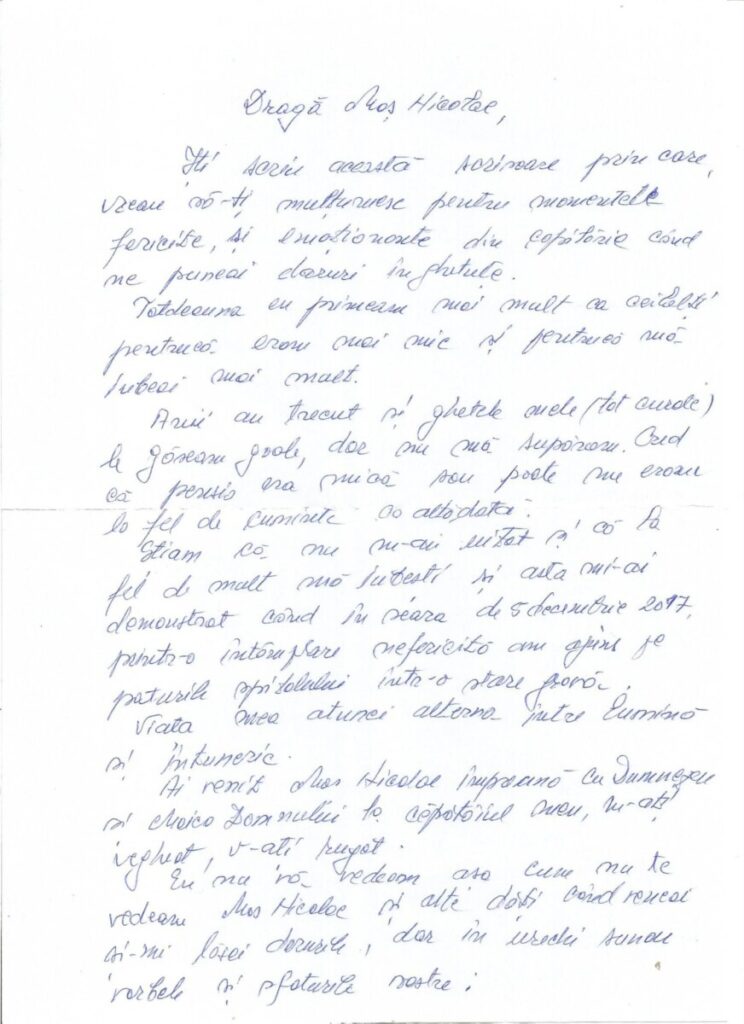 Dragă Moș Nicolae,
Îți scriu această scrisoare prin care,
vreau să-ți mulțumesc pentru momentele
fericite, și emoționante din copilărie când
ne puneai daruri în ghetuțe.
Totdeauna eu primeam mai mult ca ceilalți
pentrucă eram mai mic și pentrucă mă
iubeai mai mult.
Anii au trecut și ghetele mele (tot curate)
le găseam goale, dar nu mă supăram. Cred
că pensia era mică sau poate nu eram
la fel de cuminte ca altădată.
Știam că nu m-ai uitat și că la
fel de mult mă iubești și asta mi-ai
demonstrat când în seara de 5 decembrie 2017,
printr-o întâmplare nefericită am ajuns pe
paturile spitalului într-o stare gravă.
Viața mea atunci alterna între lumină
și întuneric.
Ai venit Moș Nicolae împreună cu Dumnezeu
și Maica Domnului la căpătâiul meu, m-ați
vegheat, v-ați rugat.
Eu nu vă vedeam așa cum nu te
vedeam Moș Nicolae și alte dăți când veneai
și-mi lăsai darurile, dar în urechi sunau
vorbele și sfaturile voastre: